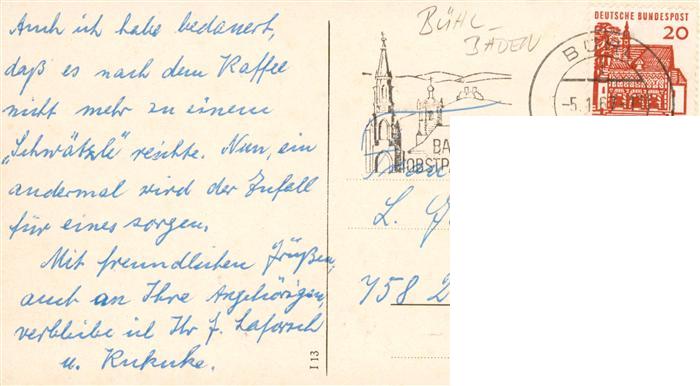 Auch ich habe bedauert,
daß es nach dem Kaffee
nicht mehr zu einem
„Schwätzle" reichte. Nun, ein
andermal wird der Zufall
für eines sorgen.
Mit freundlichen Grüßen,
auch an Ihre Angehörigen,
verbleibe ich Ihr J. Laforsch
u. Kukuke.
I 13
BÜHL-
BADEN
DEUTSCHE BUNDESPOST
20
-5.1.6
BA
OBST
L.
758